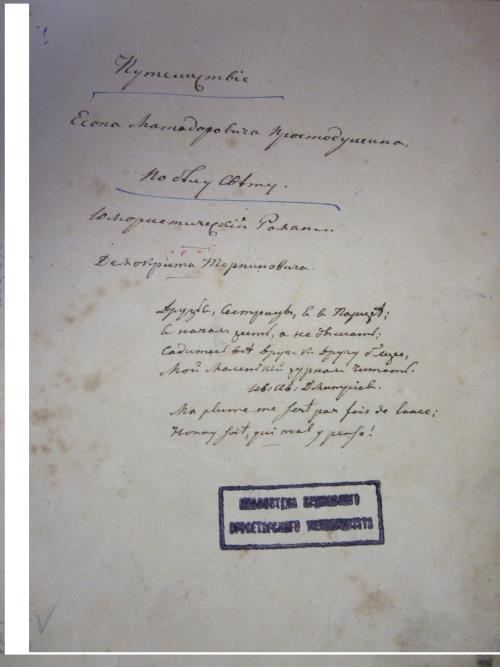 Путешествіе
Есопа Матадоровича Простодушина.
По бѣлу Свѣту.
Юмористическій Романъ.
Демокрита Терпиновича.
Друзья, Сестрицы, я в Парижѣ;
Я началъ жить, а не дышать;
Садитесь всѣ другъ къ другу ближе,
Мой маленькій журналъ читать.
Ив: Ив: Дмитріев.
Ma plume me sert par fois de lance;
Honny soit, qui mal y pense!
БИБЛИОТЕКА
УНИВЕРСИТЕТА